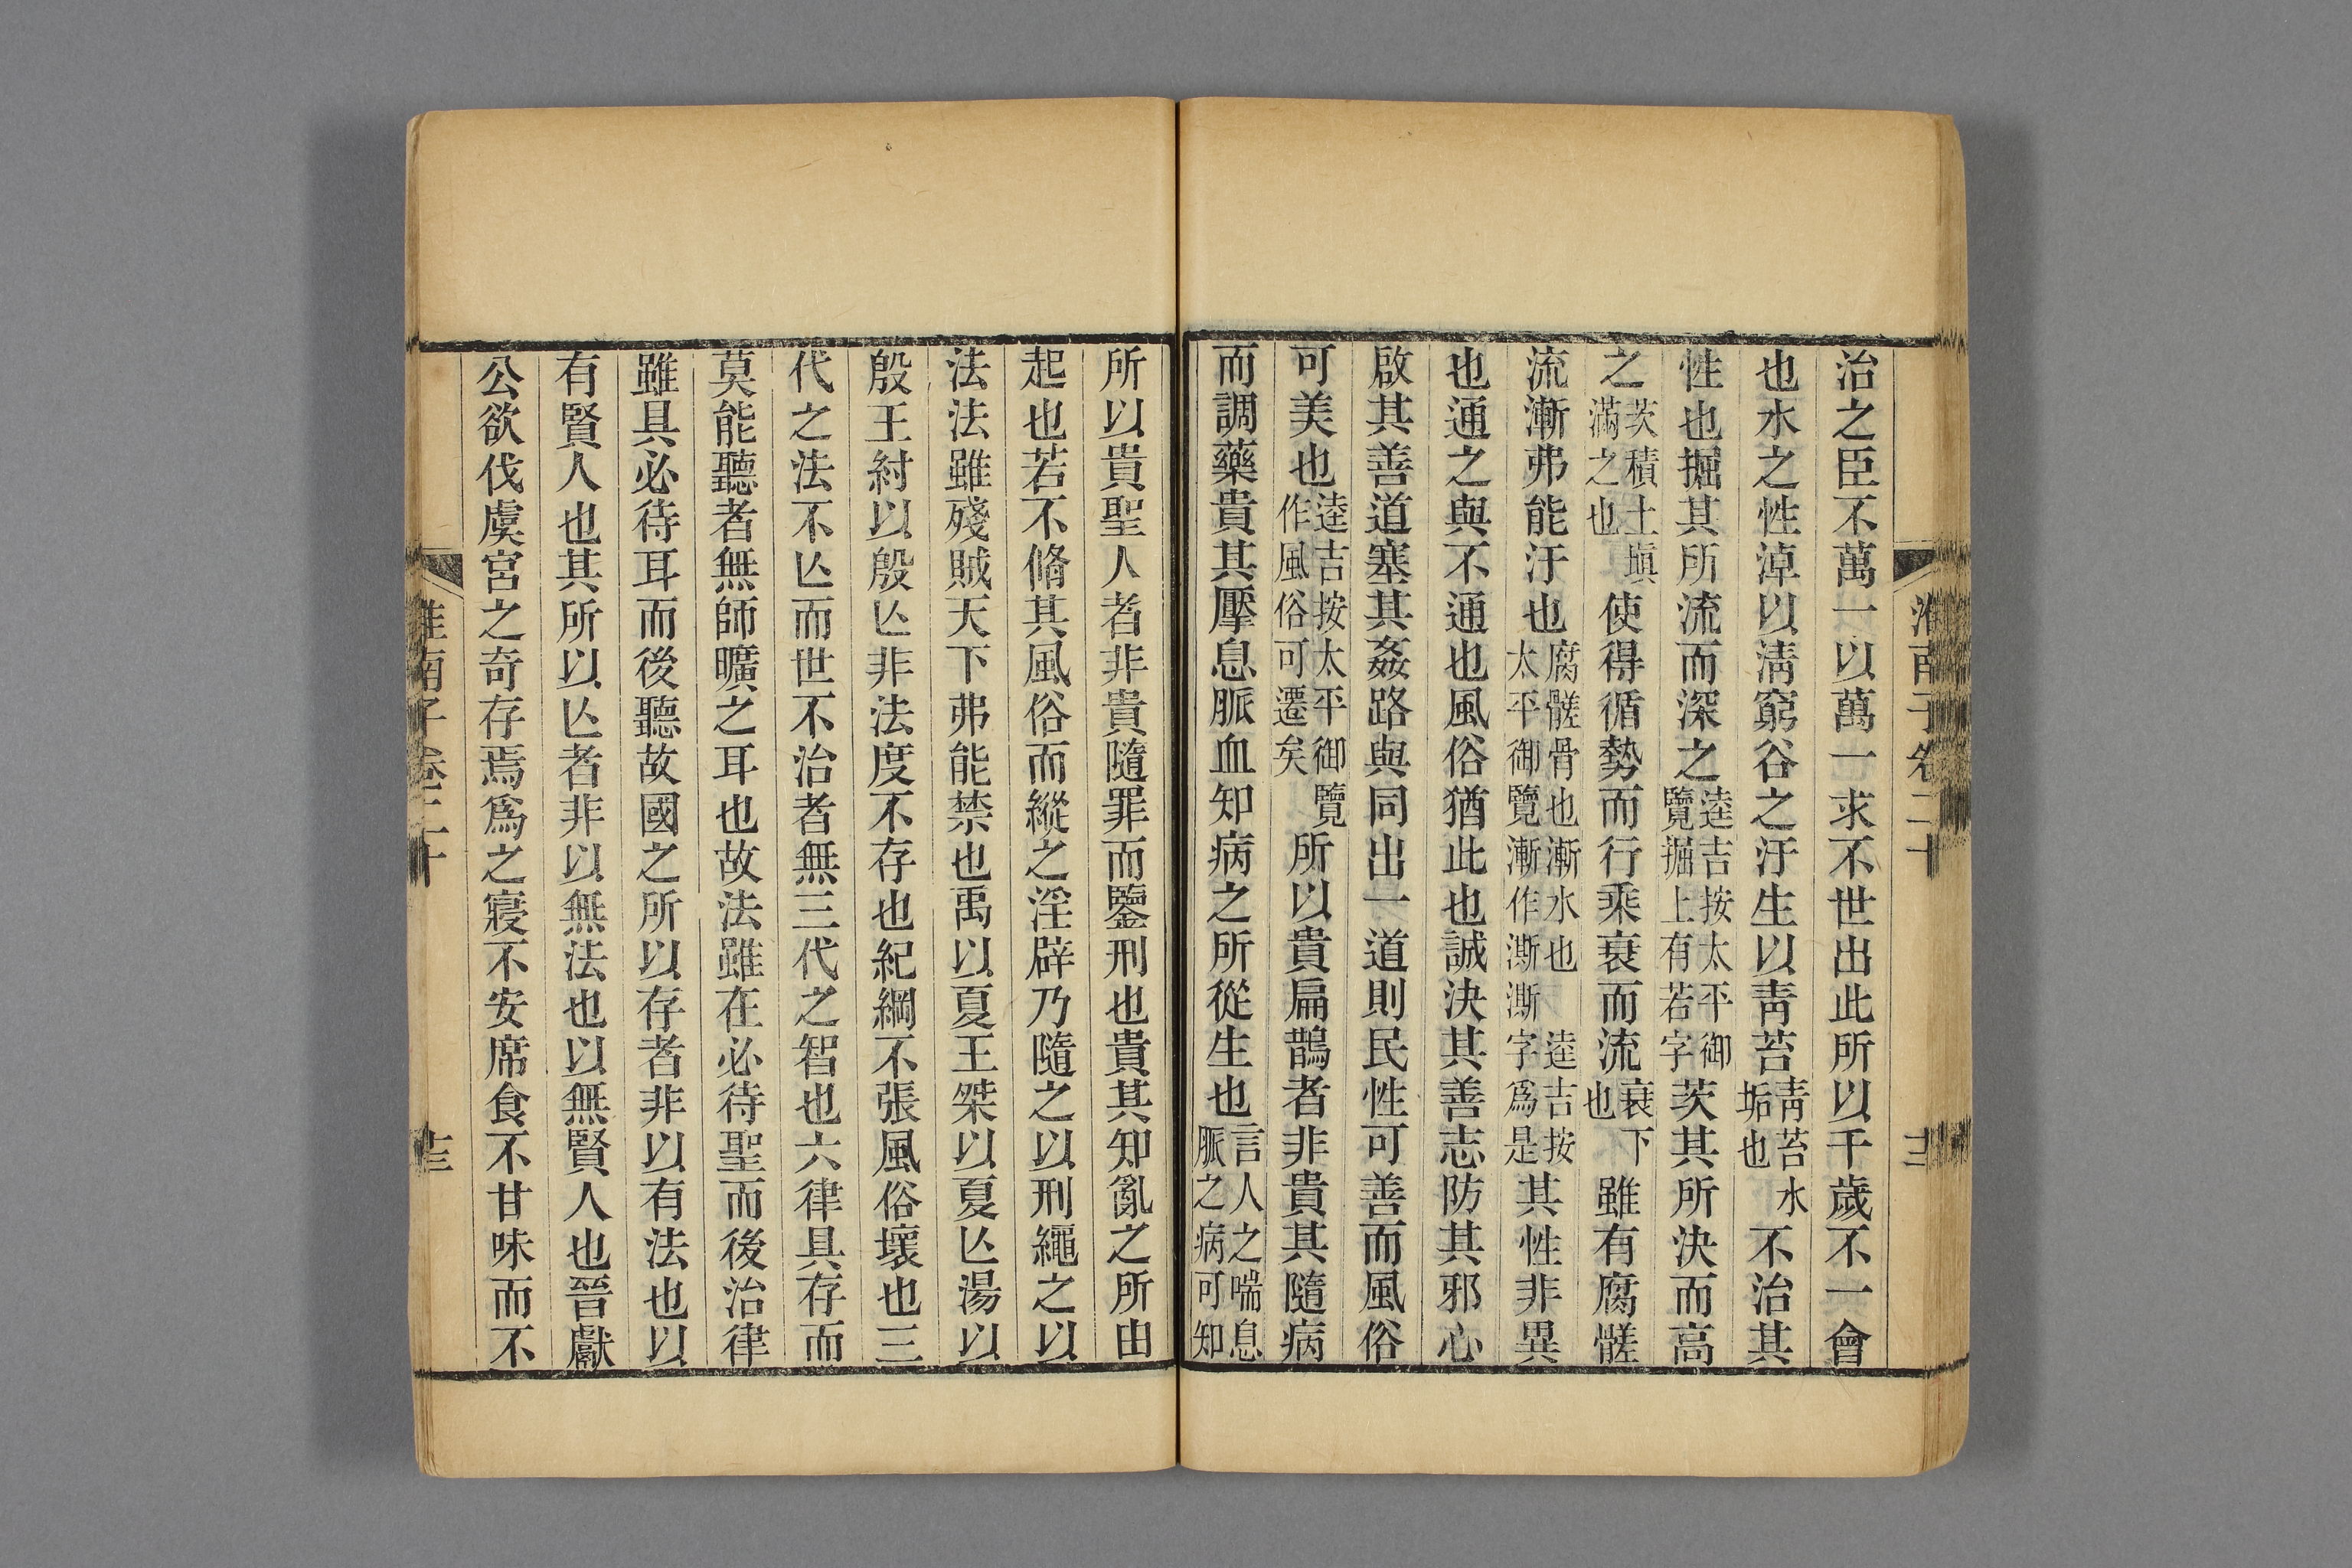 淮南子卷二十
治之臣不萬一以萬一求不世出此所以千歲不一會
也水之性淖以淸窮谷之汙生以靑苔靑苔水垢也不治其
性也掘其所流而深之逵吉按太平御覽掘上有若字茨其所決而高
之茨積土塡滿之也使得循勢而行乘衰而流衰下也雖有腐髊
流漸弗能汙也腐髊骨也漸水也逵吉按太平御覽漸作澌澌字爲是其性非異
也通之與不通也風俗猶此也誠決其善志防其邪心
啟其善道塞其姦路與同出一道則民性可善而風俗
可美也逵吉按太平御覽作風俗可遷矣所以貴扁鵲者非貴其隨病
而調藥貴其擪息脈血知病之所從生也言人之喘息脈之病可知
所以貴聖人者非貴隨罪而鑒刑也貴其知亂之所由
起也若不脩其風俗而縱之淫辟乃隨之以刑繩之以
法法雖殘賊天下弗能禁也禹以夏王桀以夏亾湯以
殷王紂以殷亾非法度不存也紀綱不張風俗壞也三
代之法不亾而世不治者無三代之智也六律具存而
莫能聽者無師曠之耳也故法雖在必待聖而後治律
雖具必待耳而後聽故國之所以存者非以有法也以
有賢人也其所以亾者非以無法也以無賢人也晉獻
公欲伐虞宮之奇存焉爲之寢不安席食不甘味而不
淮南子卷二十